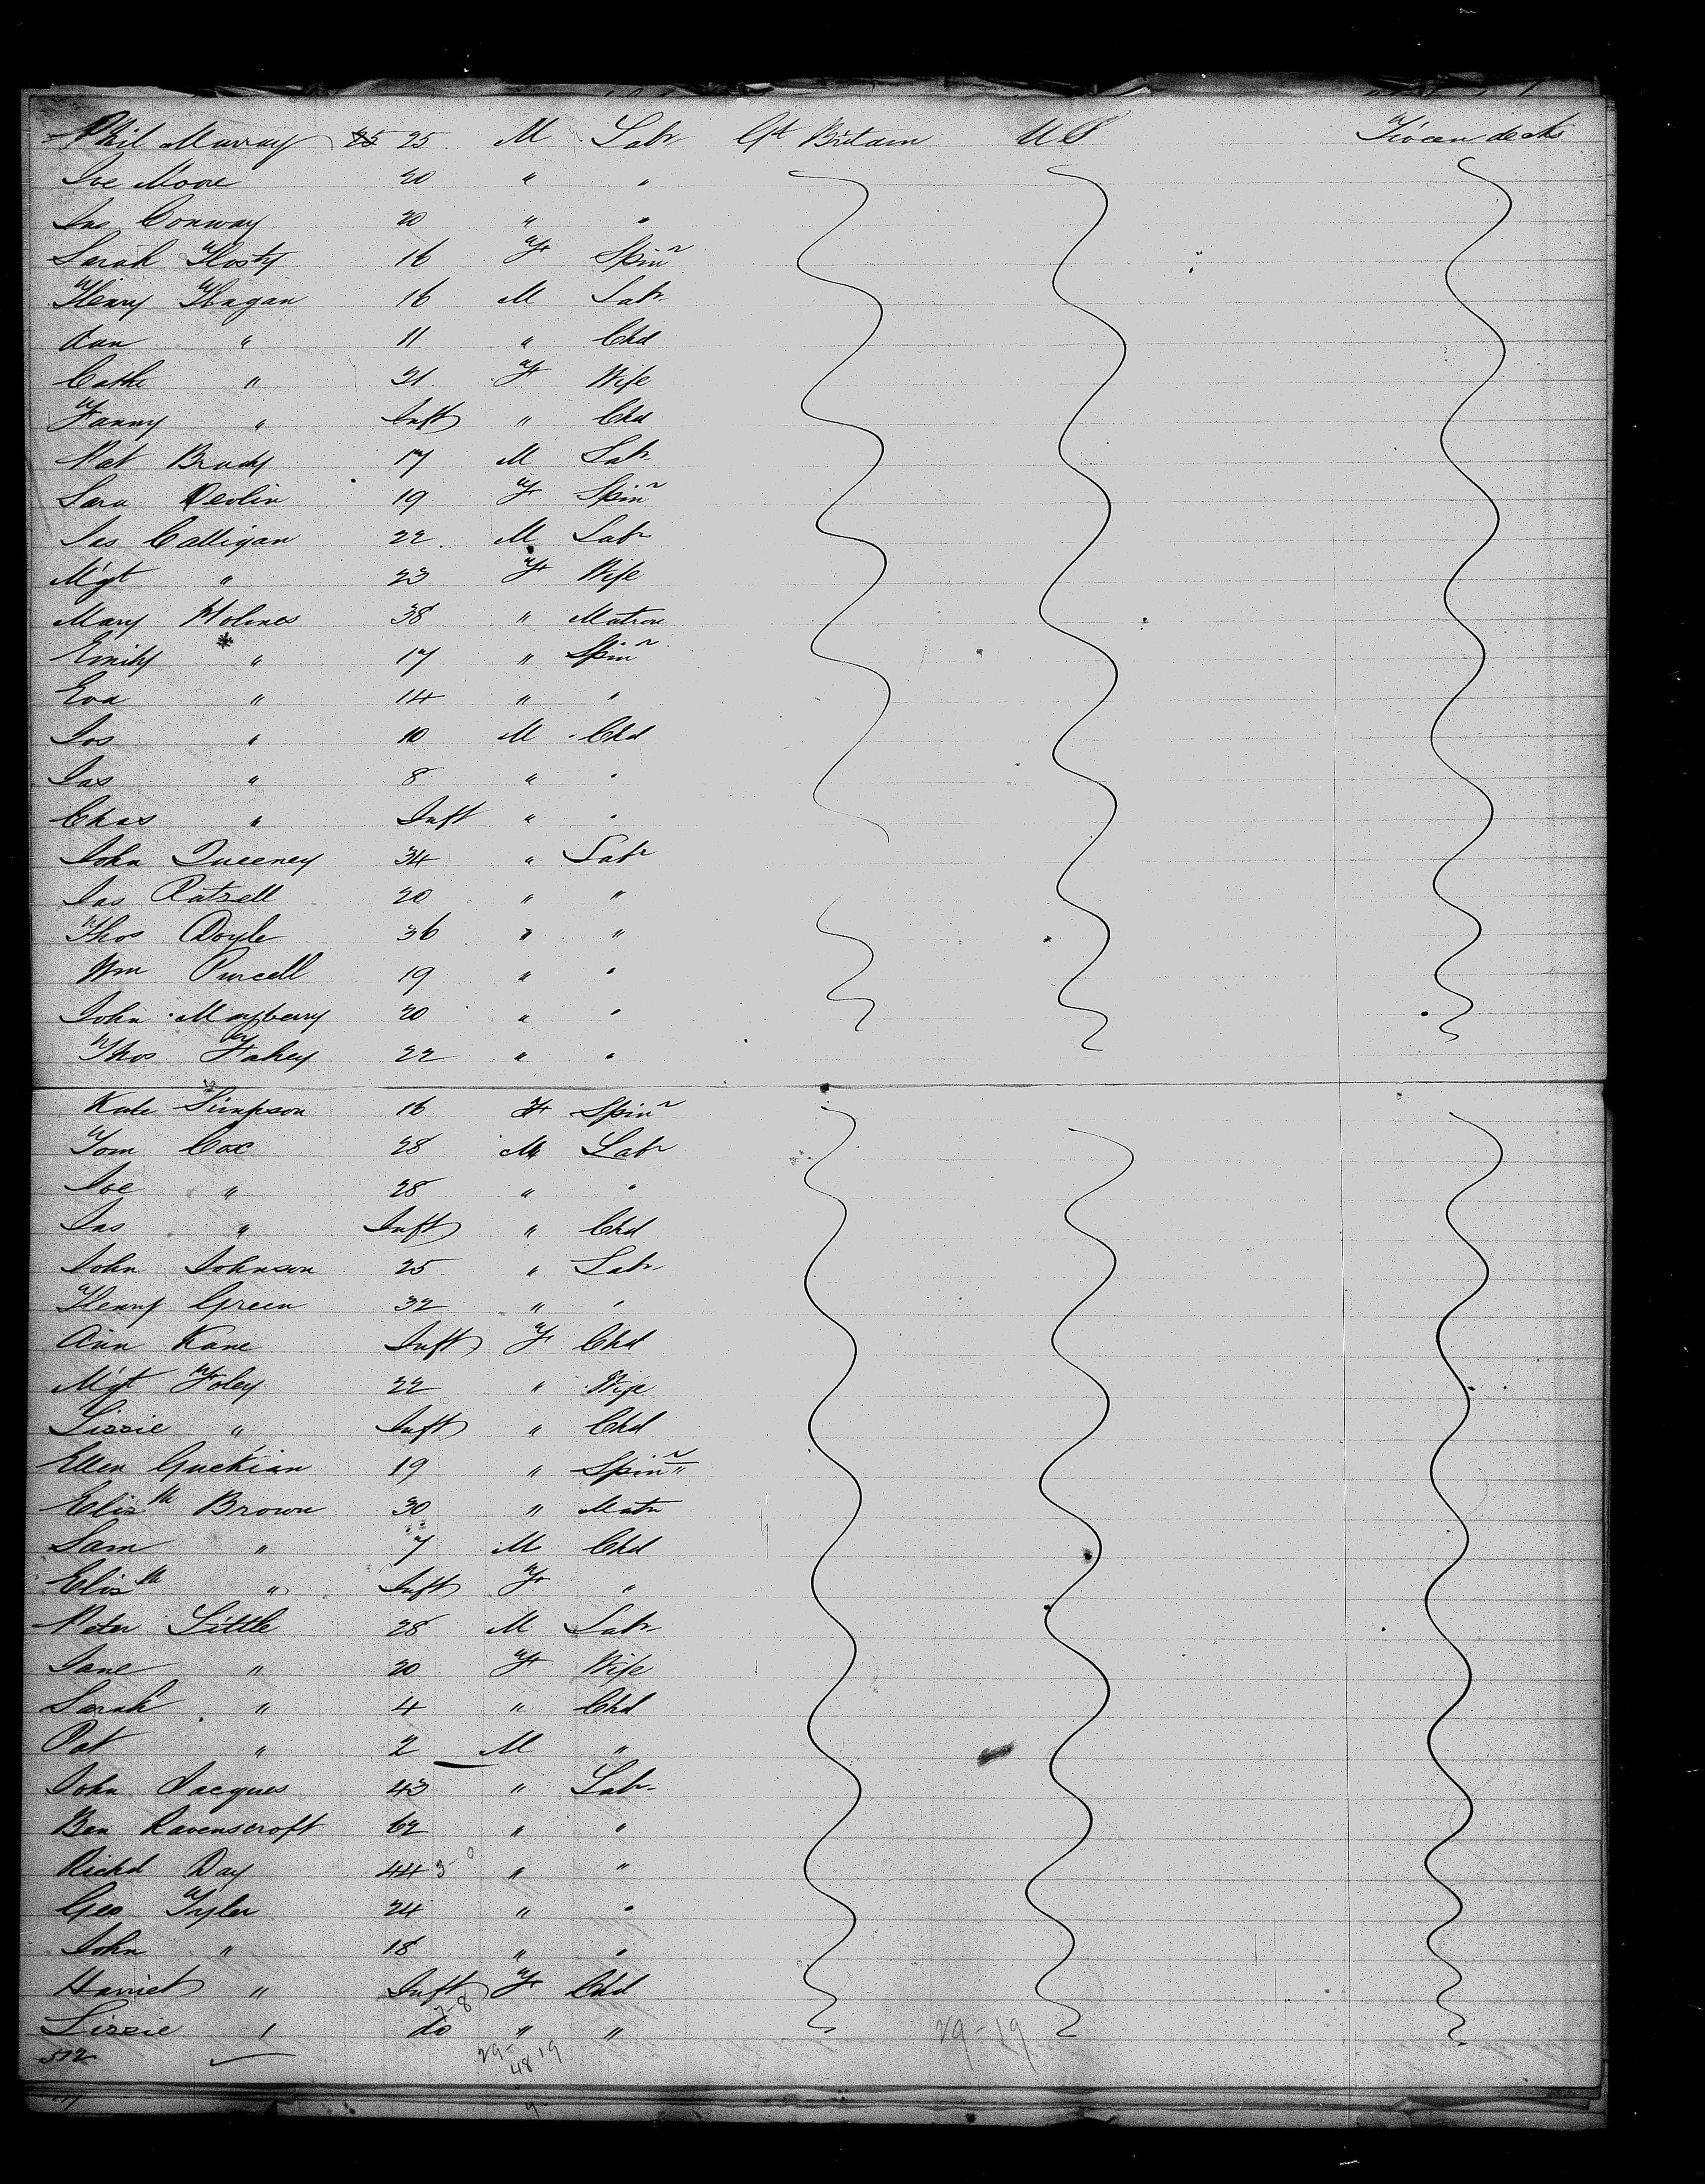 Phil Murray 25 25 M Labr Gt Britain U S Tween decks
Joe Moore 20 " "
Jno Conway 20 " "
Sarah Hosty 16 F Spinr
Henry Hagan 16 M Labr
Ann " 11 " Chd
Cathe " 31 F Wife
Fanny " Inft " Chd
Pat Brady 17 M Labr
Sara Devlin 19 F Spinr
Jas Calligan 22 M Labr
Mgt " 23 F Wife
Mary Holmes 38 " Matron
Emily " 17 " Spinr
Eva " 14 " "
Jos " 10 M Chd
Jas " 8 " "
Chas " Inft " "
John Queeney 34 " Labr
Jas Rutsell 20 " "
Thos Doyle 36 " "
Wm Purcell 19 " "
John Mayberry 20 " "
Thos Fahey 22 " "
Kate Simpson 16 F Spinr
Tom Cox 28 M Labr
Joe " 28 " "
Jas " Inft " Chd
John Johnson 25 " Labr
Henry Green 32 " "
Ann Kane Inft F Chd
Mgt Foley 22 " Wife
Lizzie " Inft " Chd
Ellen Guckian 19 " Spinr "
Elizth Brown 30 " Matn
Sam " 7 M Chd
Elizth " Inft F "
Peter Little 28 M Labr
Jane " 20 F Wife
Sarah " 4 " Chd
Pat " 2 M "
John Jacques 43 " Labr
Ben Ravenscroft 62 " "
Richd Day 44 " "
Geo Tyler 24 " "
John " 18 " "
Harriet " Inft F Chd
Lizzie " do " "
29-19
572 29-19
48